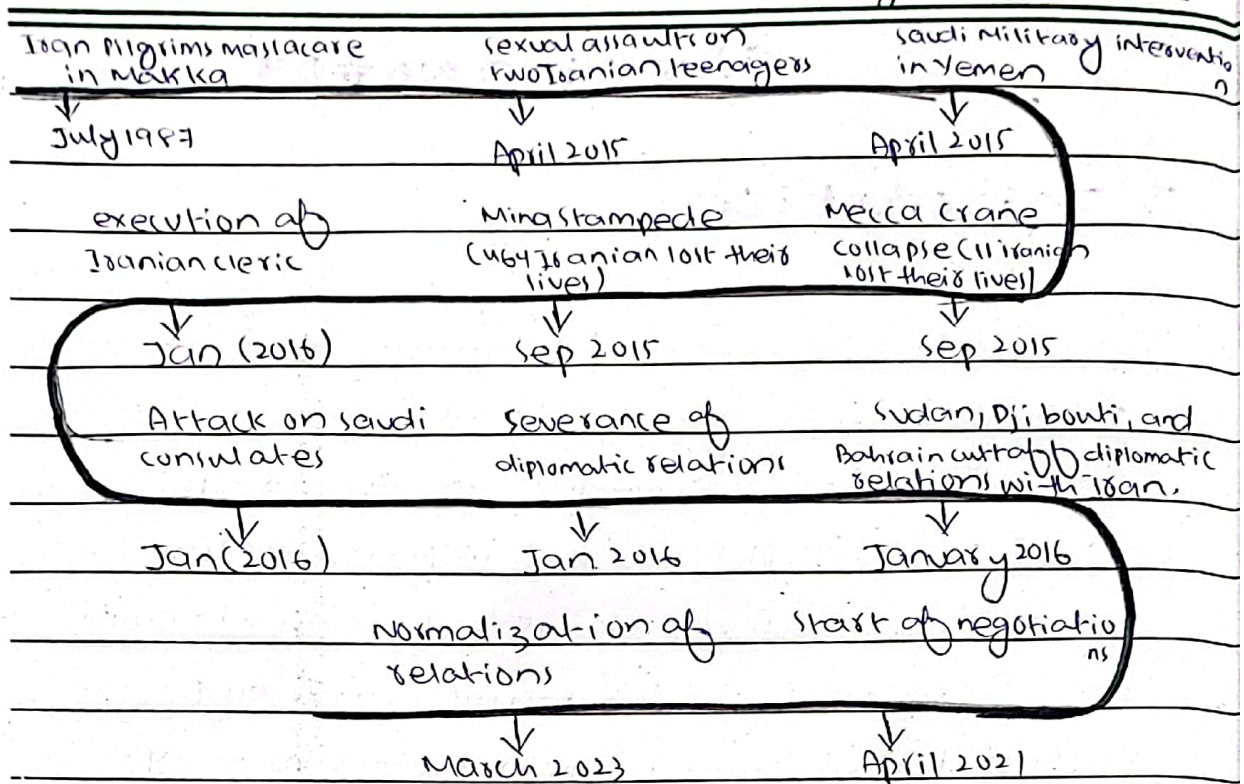 Iran Pilgrims maslacare
in Makka
sexual assault on
two Iranian teenagers
Saudi Military interventio
n
in Yemen
July 1987
April 2015
April 2015
execution of
Iranian cleric
Mina stampede
(464 Iranian lost their
lives)
Mecca crane
collapse (11 iranian
lost their lives)
Jan (2016)
Sep 2015
Sep 2015
Attack on saudi
consulates
severance of
diplomatic relations
Sudan, Djibouti, and
Bahrain cutt off diplomatic
relations with Iran.
Jan (2016)
Jan 2016
January 2016
Normalization of
relations
start of negotiatio
ns
March 2023
April 2021